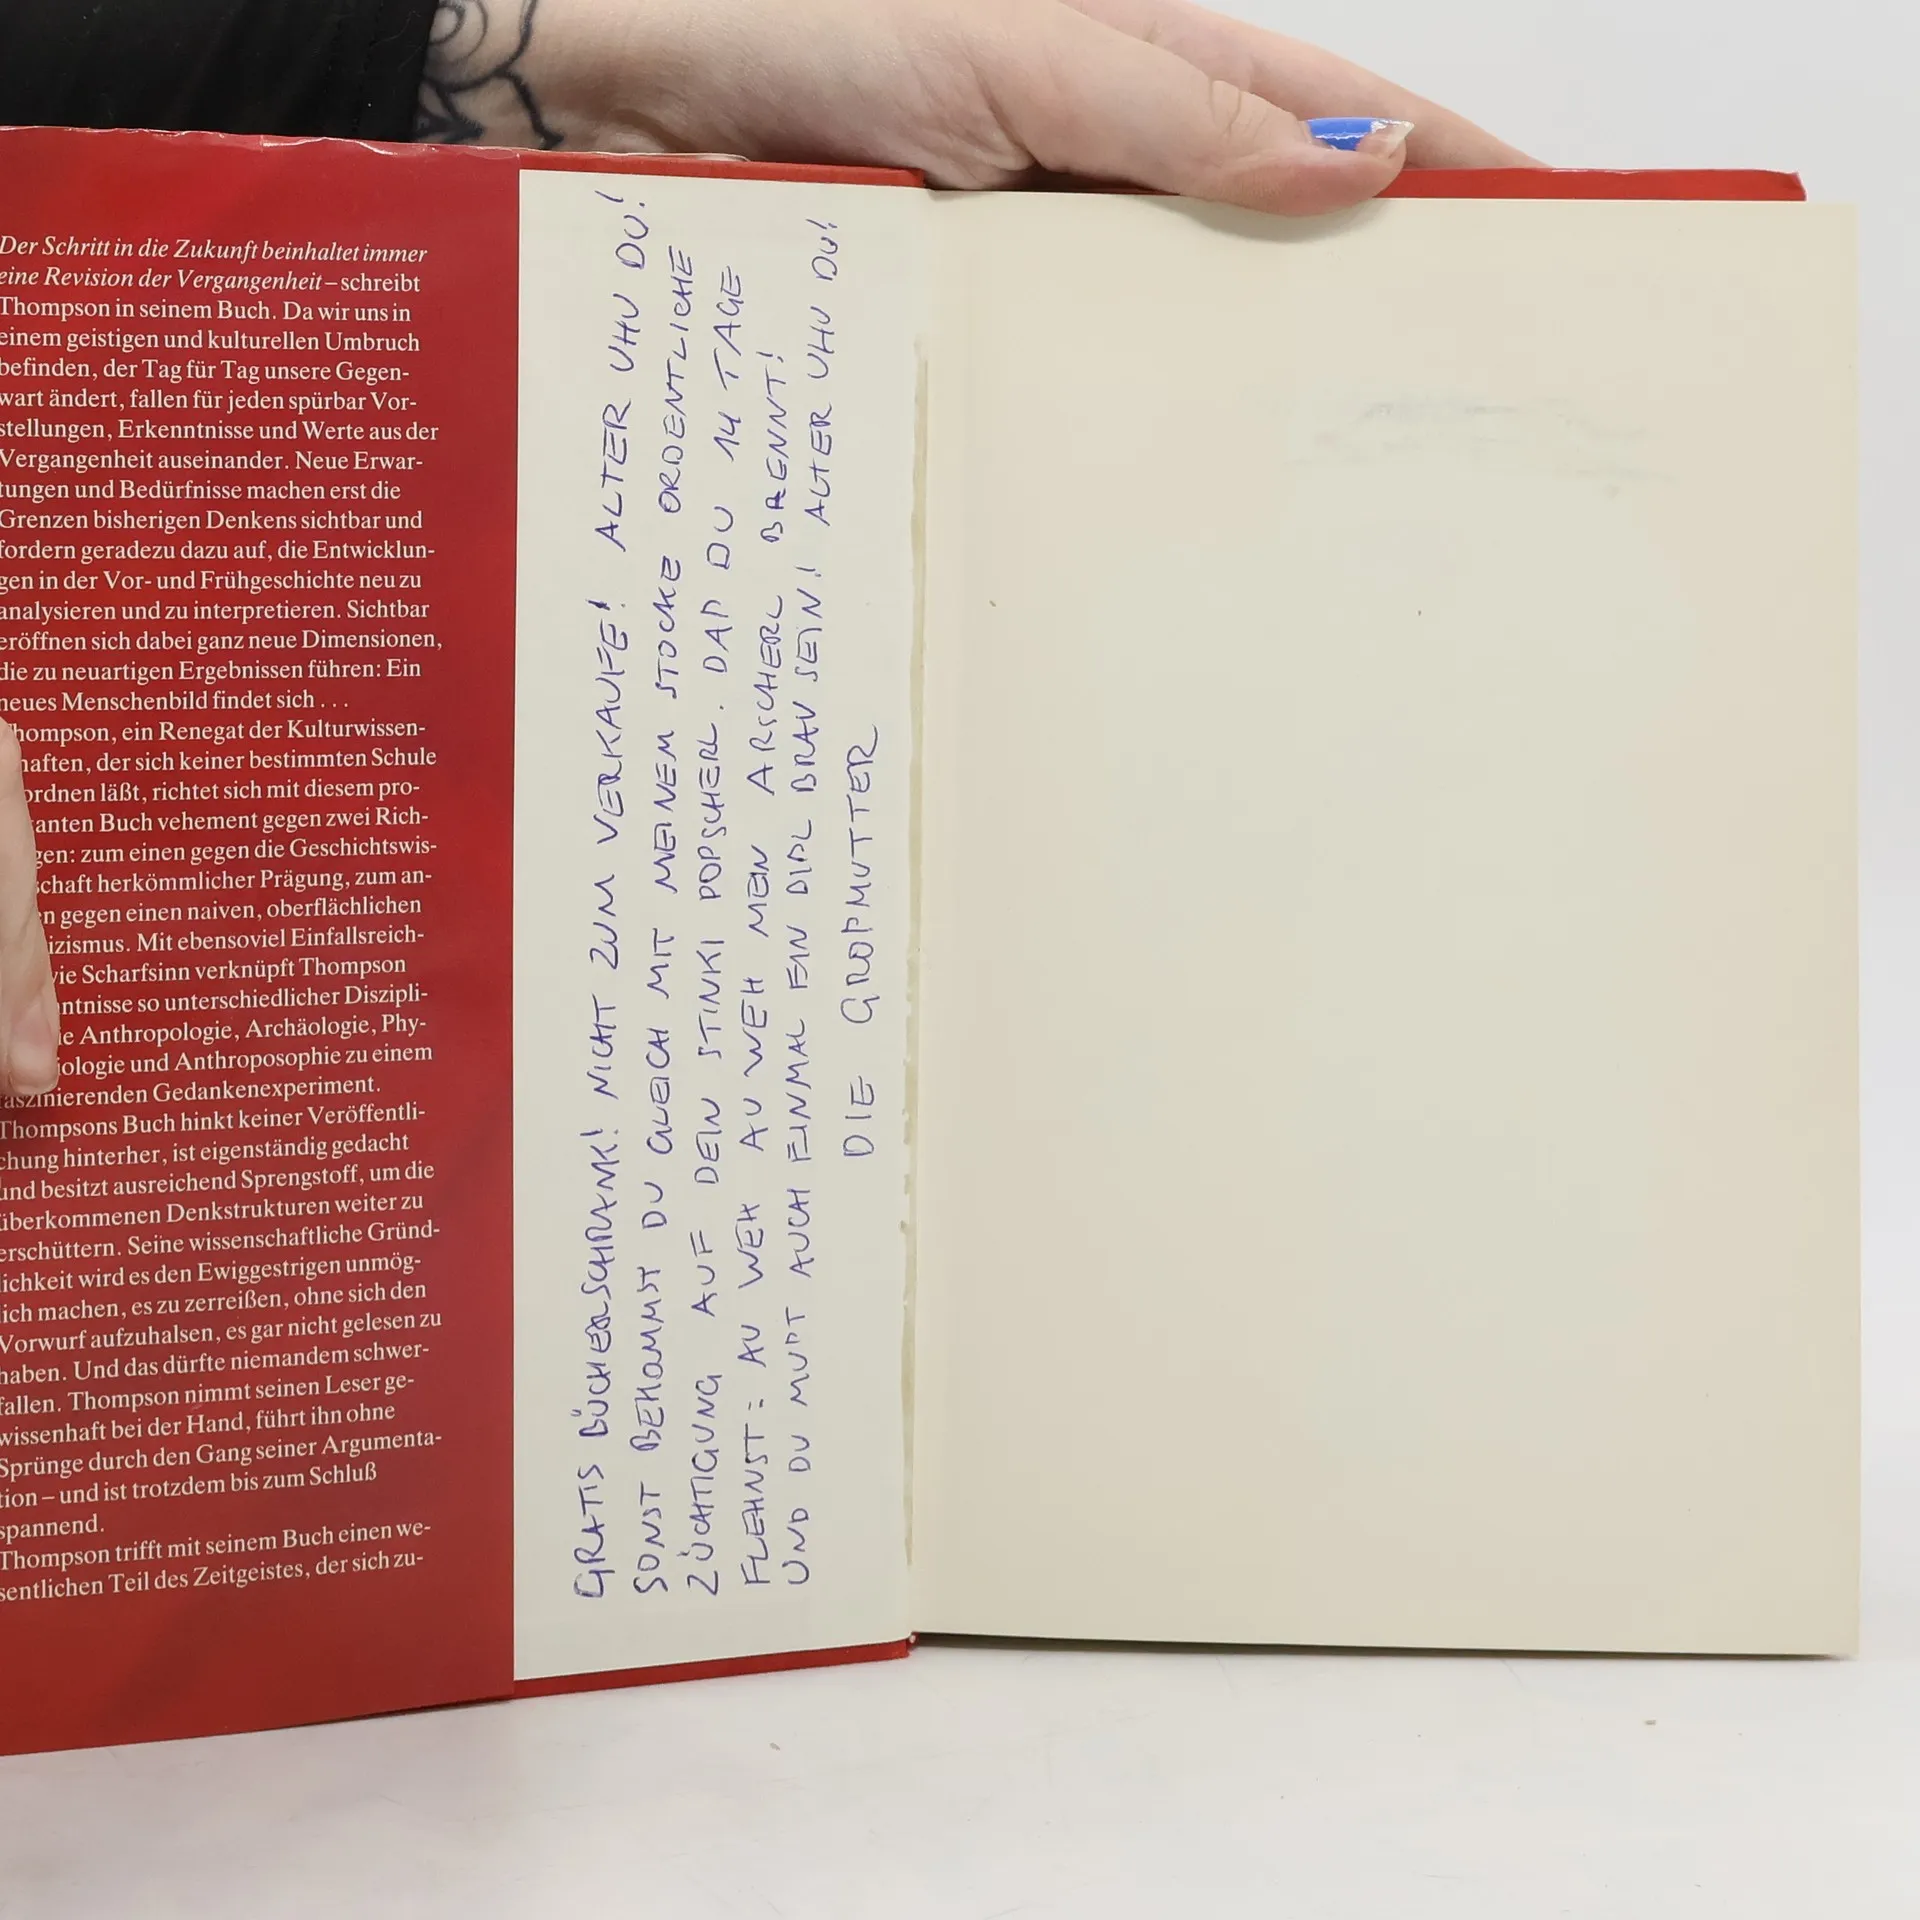 Der Schritt in die Zukunft beinhaltet immer
eine Revision der Vergangenheit – schreibt
Thompson in seinem Buch. Da wir uns in
einem geistigen und kulturellen Umbruch
befinden, der Tag für Tag unsere Gegen-
wart ändert, fallen für jeden spürbar Vor-
stellungen, Erkenntnisse und Werte aus der
Vergangenheit auseinander. Neue Erwar-
tungen und Bedürfnisse machen erst die
Grenzen bisherigen Denkens sichtbar und
fordern geradezu dazu auf, die Entwicklun-
gen in der Vor- und Frühgeschichte neu zu
analysieren und zu interpretieren. Sichtbar
eröffnen sich dabei ganz neue Dimensionen,
die zu neuartigen Ergebnissen führen: Ein
neues Menschenbild findet sich . . .
Thompson, ein Renegat der Kulturwissen-
haften, der sich keiner bestimmten Schule
ordnen läßt, richtet sich mit diesem pro-
anten Buch vehement gegen zwei Rich-
gen: zum einen gegen die Geschichtswis-
schaft herkömmlicher Prägung, zum an-
n gegen einen naiven, oberflächlichen
izismus. Mit ebensoviel Einfallsreich-
wie Scharfsinn verknüpft Thompson
ntnisse so unterschiedlicher Diszipli-
ie Anthropologie, Archäologie, Phy-
iologie und Anthroposophie zu einem
faszinierenden Gedankenexperiment.
Thompsons Buch hinkt keiner Veröffentli-
chung hinterher, ist eigenständig gedacht
und besitzt ausreichend Sprengstoff, um die
überkommenen Denkstrukturen weiter zu
erschüttern. Seine wissenschaftliche Gründ-
lichkeit wird es den Ewiggestrigen unmög-
lich machen, es zu zerreißen, ohne sich den
Vorwurf aufzuhalsen, es gar nicht gelesen zu
haben. Und das dürfte niemandem schwer-
fallen. Thompson nimmt seinen Leser ge-
wissenhaft bei der Hand, führt ihn ohne
Sprünge durch den Gang seiner Argumenta-
tion – und ist trotzdem bis zum Schluß
spannend.
Thompson trifft mit seinem Buch einen we-
sentlichen Teil des Zeitgeistes, der sich zu-
GRATIS BÜCHERSCHRANK! NICHT ZUM VERKAUFE! ALTER UHU DU!
SONST BEKOMMST DU GLEICH MIT MEINEM STOCKE ORDENTLICHE
ZÜCHTIGUNG AUF DEIN STINKI POPSCHERL. DAß DU 14 TAGE
FLEHNST: AU WEH AU WEH MEIN ARSCHERL BRENNT!
UND DU MUßT AUCH EINMAL EIN BIßL BRAV SEIN! ALTER UHU DU!
DIE GROßMUTTER